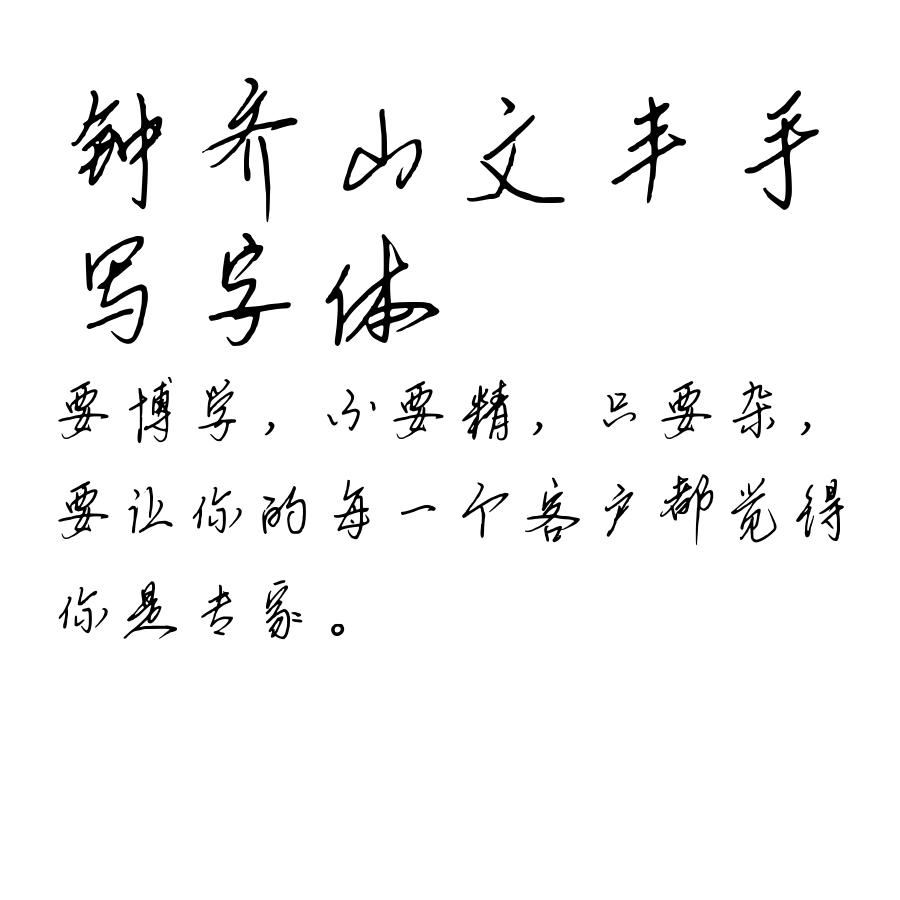 钟齐山文丰手
写字体
要博学，不要精，只要杂，
要让你的每一个客户都觉得
你是专家。